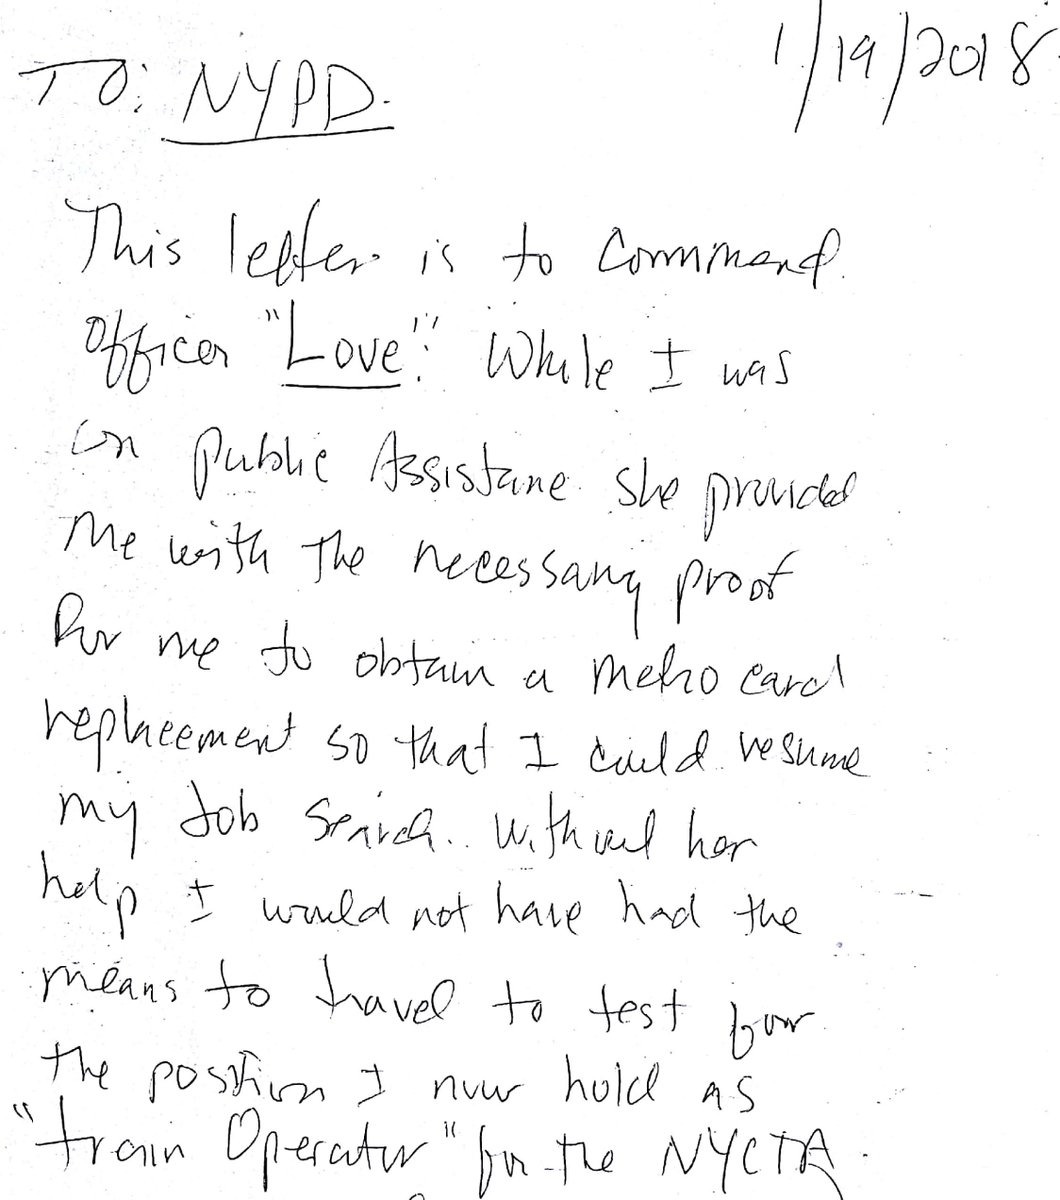 1/19/2018
TO: NYPD.
This letter is to Command
Officer "Love". While I was
on public Assistane she provided
me with the necessary proof
for me to obtain a metro card
replacement so that I could resume
my Job Search. Without her
help I would not have had the
means to travel to test for
the position I now hold as
"train Operator" for the NYCTA.